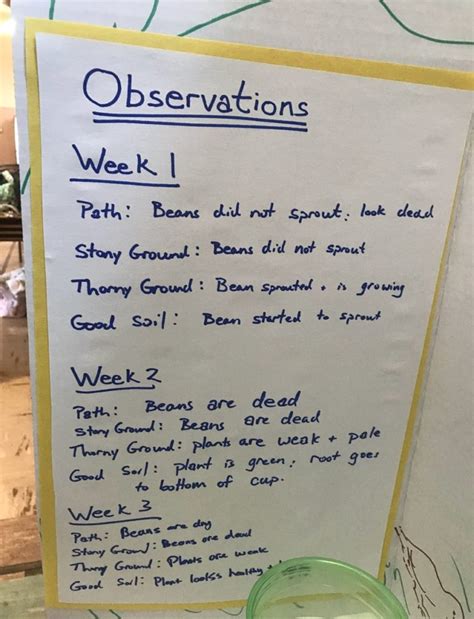 Observations
Week 1
Path: Beans did not sprout; look dead
Stony Ground: Beans did not sprout
Thorny Ground: Bean sprouted + is growing
Good Soil: Bean started to sprout
Week 2
Path: Beans are dead
Stony Ground: Beans are dead
Thorny Ground: plants are weak + pale
Good Soil: plant is green; root goes
to bottom of cup.
Week 3
Path: Beans are dry
Stony Ground: Beans are dead
Thorny Ground: Plants are weak
Good Soil: Plant looks healthy +